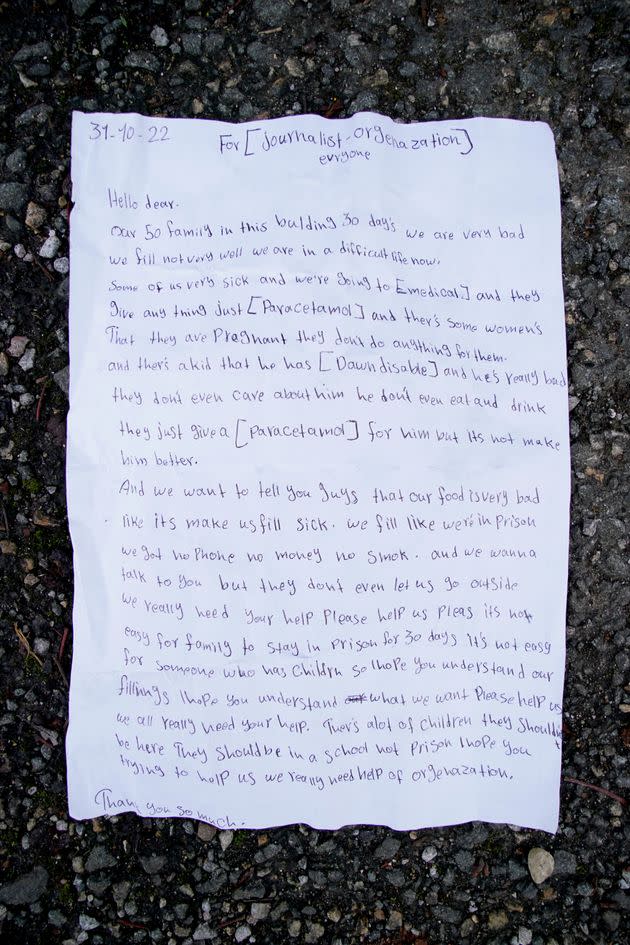 31-10-22
For [journalist-orgenazation]
evryone
Hello dear.
Our 50 family in this bulding 30 day's we are very bad
we fill not very well we are in a difficult life now.
some of us very sick and we're going to [medical] and they
give any thing just [Paracetamol] and ther's some women's
That they are Pregnant they don't do anything for them.
and ther's a kid that he has [Dawn disable] and he's really bad
they don't even care about him he don't even eat and drink
they just give a [paracetamol] for him but Its not make
him better.
And we want to tell you guys that our food is very bad
like its make us fill sick. we fill like we're in Prison
we got no Phone no money no smok. and we wanna
talk to you but they don't even let us go outside
we really need your help Please help us pleas its not
easy for family to stay in prison for 30 days it's not easy
for someone who has Children so I hope you understand our
fillings I hope you understand what we want Please help us
we all really need your help. Ther's alot of children they Should't
be here They should be in a school not prison I hope you
trying to help us we really need help of orgenazation.
Thank you so much.